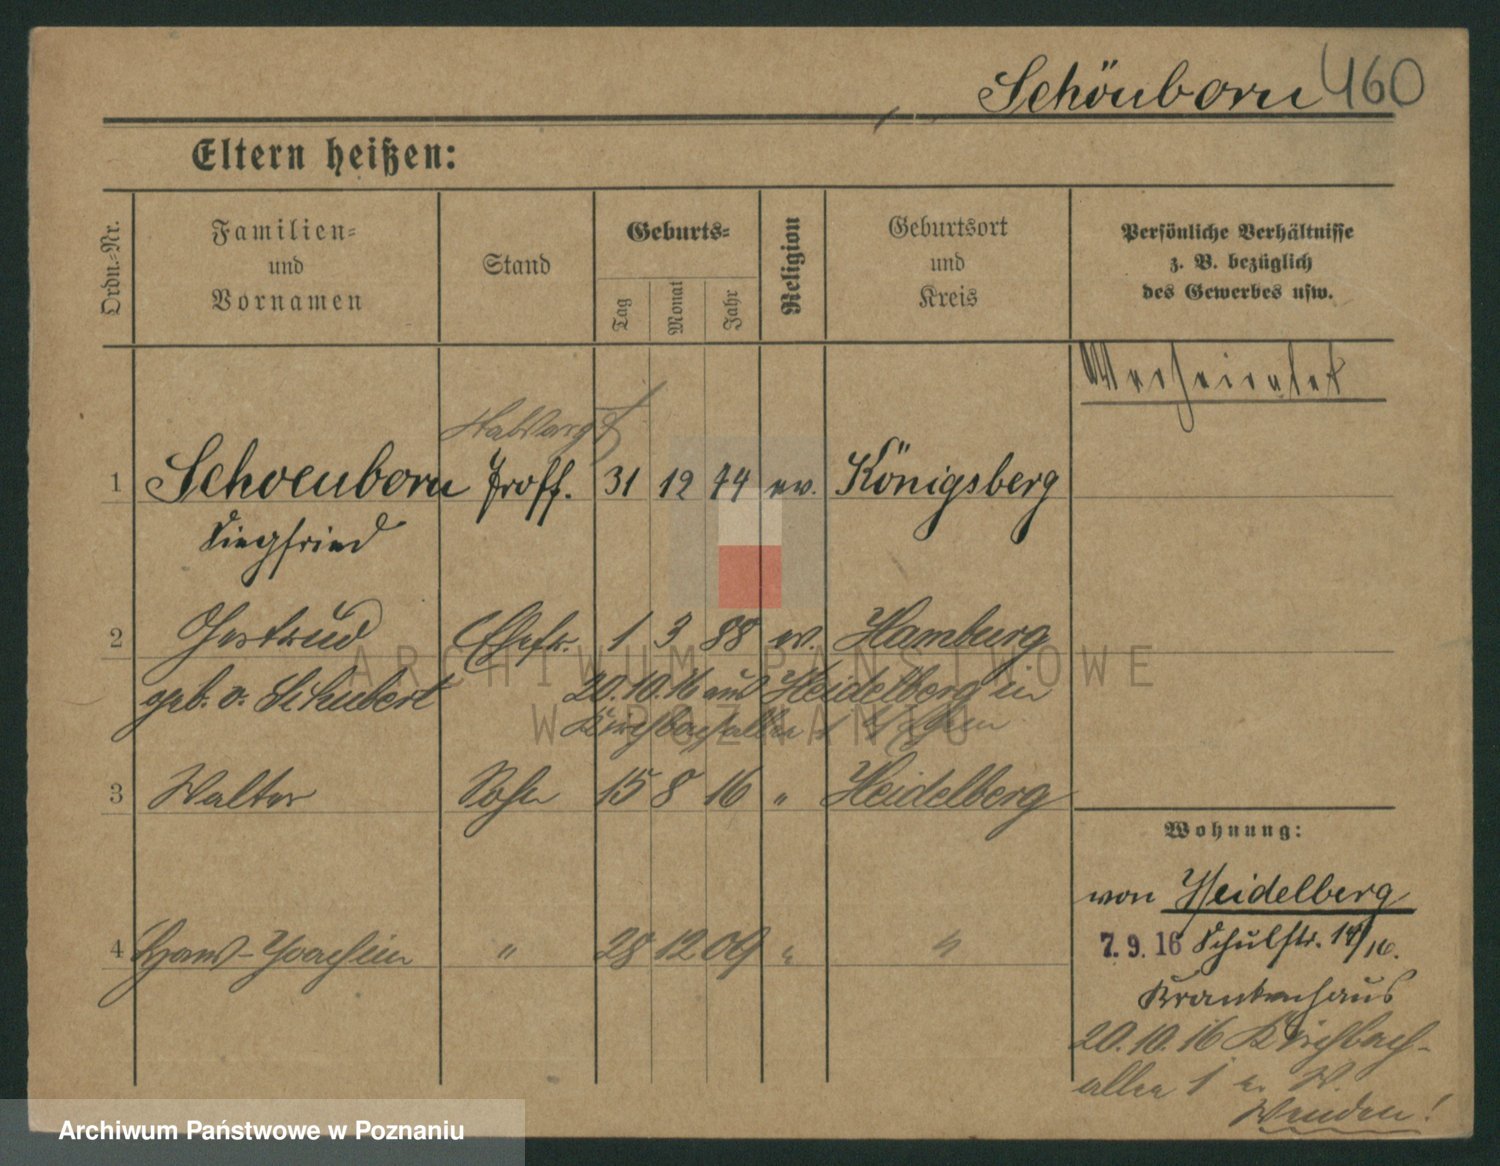 Schönborn 460
Eltern heißen:
Ordn.-Nr.
Familien-
und
Vornamen
Stand
Geburts-
Tag
Monat
Jahr
Religion
Geburtsort
und
Kreis
Persönliche Verhältnisse
z. B. bezüglich
des Gewerbes usw.
Verheiratet
1 Schoenborn Proff. 31 12 74 ev. Königsberg
Siegfried
2 Gertrud Ehefr. 1 3 88 ev. Hamburg
geb. v. Schubert 20.10.16 aus Heidelberg in
Kirchbachallee 1
3 Walter Sohn 15 8 16 " Heidelberg
4 Hans-Joachim " 28 12 09 " "
Wohnung:
von Heidelberg
7.9.16 Schulstr. 14/16.
Krankenhaus
20.10.16 Kirchbach-
allee 1
Wenden!
ARCHIWUM PAŃSTWOWE
W POZNANIU
Archiwum Państwowe w Poznaniu